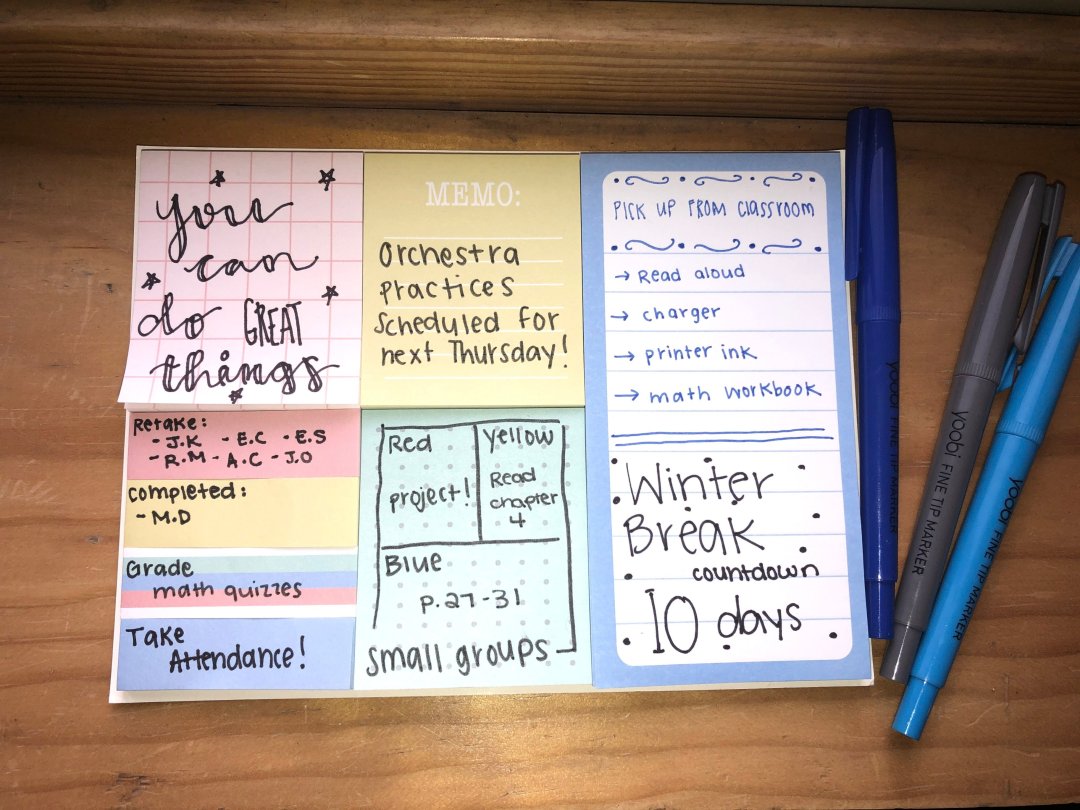 you
can
do GREAT
things
MEMO:
Orchestra
practices
Scheduled for
next Thursday!
PICK UP FROM classroom
→ Read aloud
→ charger
→ printer ink
→ math workbook
Winter
Break
countdown
10 days
Retake:
- J.K - E.C - E.S
- R.M - A.C - J.O
completed:
- M.D
Grade
math quizzes
Take
Attendance!
Red
project!
yellow
Read
chapter
4
Blue
P.27-31
small groups
yoobi FINE TIP MARKER
yoobi FINE TIP MARKER
yoobi FINE TIP MARKER